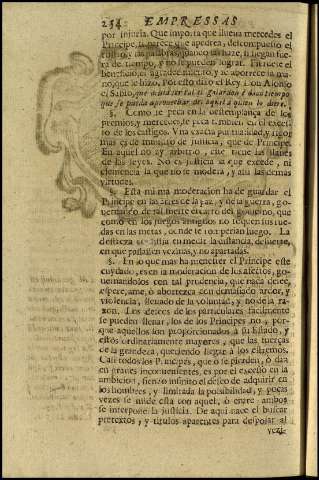 234 EMPRESSAS
por injuria. Que importa que llueva mercedes el
Principe, si parece que apedrea, descompuesto el
rostro, y las palabras, quando las haze, si llegan fue-
ra de tiempo, y no se pueden lograr. Pierdese el
beneficio, i el agradecimiento, y se aborrece la ma-
no, que le hizo. Por esto dixo el Rey Don Alonso
el Sabio, que devia ser tal el Guardon è dado à tiempo
que se pueda aprovechar del aquel à quien lo diere.
§. Como se peca en la destemplança de los
premios, y mercedes, se peca tambien en el exces-
so de los castigos. Una exacta puntualidad, y rigor
mas es de ministro de justicia, que de Principe.
En aquel no ay arbitrio, este tiene las llaves
de las leyes. No es justicia la que excede, ni
clemencia la que no se modera, y assi las demas
virtudes.
§. Esta misma moderacion ha de guardar el
Principe en las artes de la paz, y de la guerra, go-
vernando de tal suerte el carro del govierno, que
como en los juegos antiguos no toquen sus rue-
das en las metas, donde se romperian luego. La
destreza consistia en medir la distancia, de suerte,
en que passassen vezinas, y no apartadas.
§. En lo que mas ha menester el Principe este
cuydado, es en la moderacion de los afectos, go-
vernandolos con tal prudencia, que nada desee,
espere, ame, ò aborrezca con demasiado ardor, y
violencia, llevado de la voluntad, y no de la ra-
zon. Los deseos de los particulares facilmente
se pueden llenar, los de los Principes no, por-
que aquellos son proporcionados à su estado, y
estos ordinariamente mayores, que las fuerças
de la grandeza, queriendo llegar à los estremos.
Casi todos los Principes, que ò se pierden, ò dan
en graves inconvenientes, es por el excesso en la
ambicion, siendo infinito el deseo de adquirir en
los hombres, y limitada la possibilidad, y pocas
vezes se mide esta con aquel, ò entre ambos
se interpone la justicia. De aqui nace el buscar
pretextos, y titulos aparentes para despojar al
vezi-